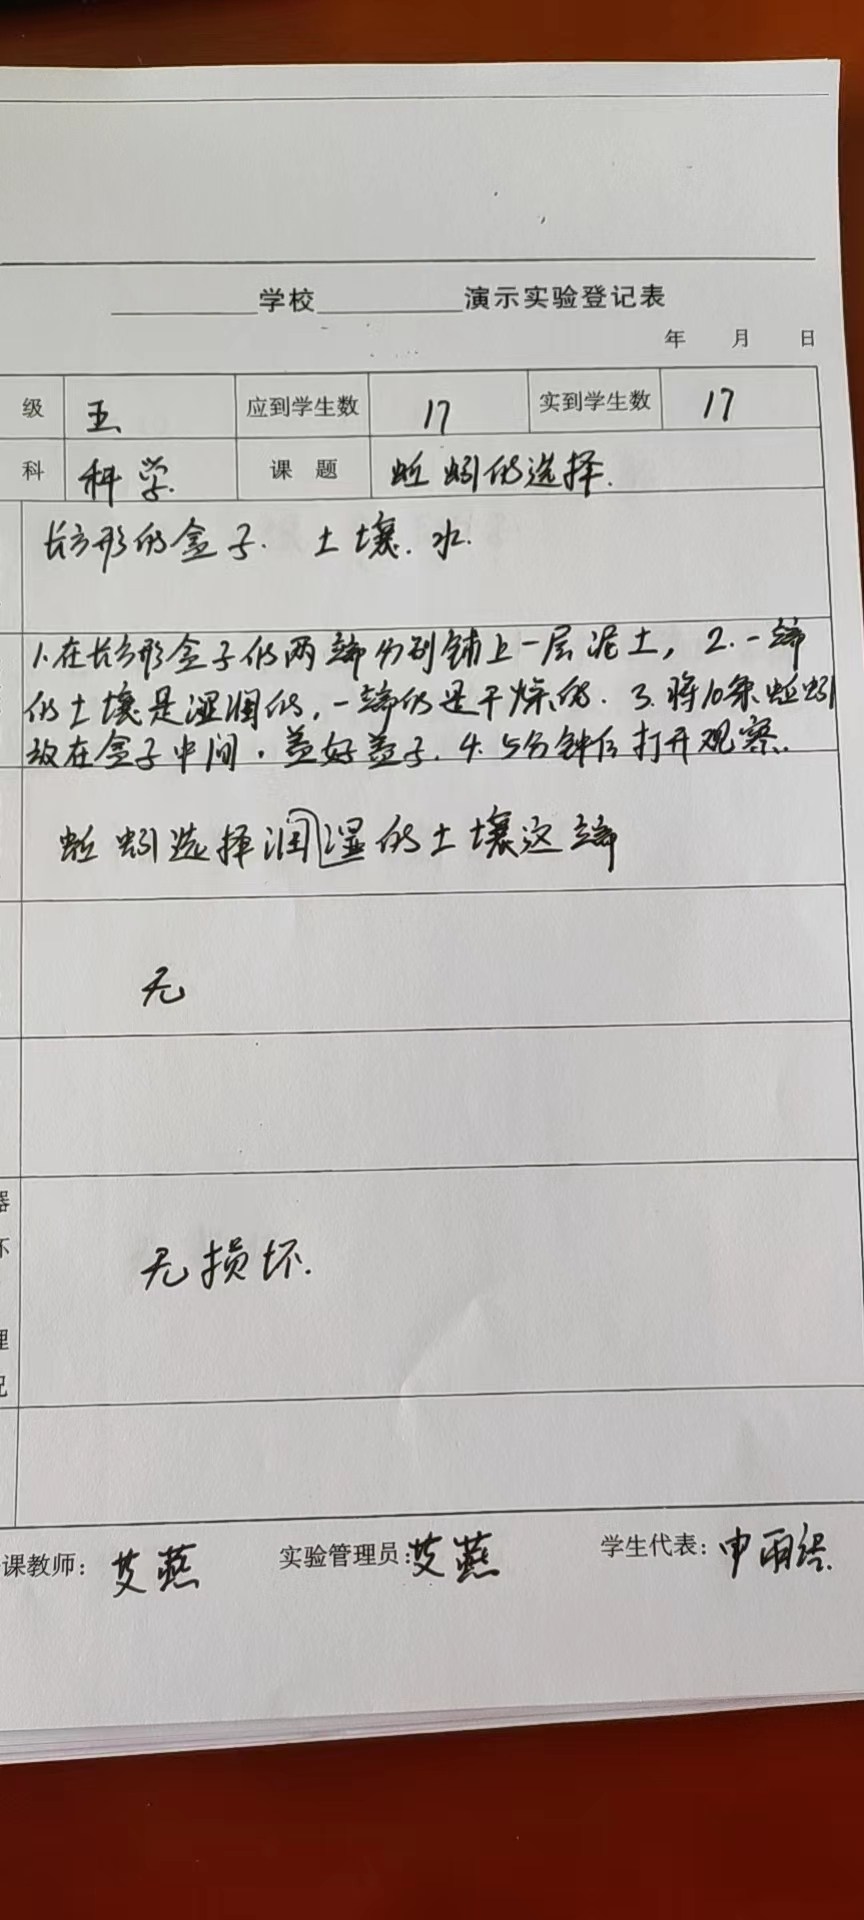 学校 演示实验登记表
年 月 日
级 五 应到学生数 17 实到学生数 17
科 科学 课题 蚯蚓的选择.
长方形的盒子. 土壤. 水.
1.在长方形盒子的两端分别铺上一层泥土, 2.一端
的土壤是湿润的, 一端的是干燥的. 3.将10条蚯蚓
放在盒子中间, 盖好盖子. 4. 5分钟后打开观察.
蚯蚓选择润湿的土壤这端
无
器
坏
无损坏.
理
况
课教师: 艾燕 实验管理员: 艾燕 学生代表: 申雨